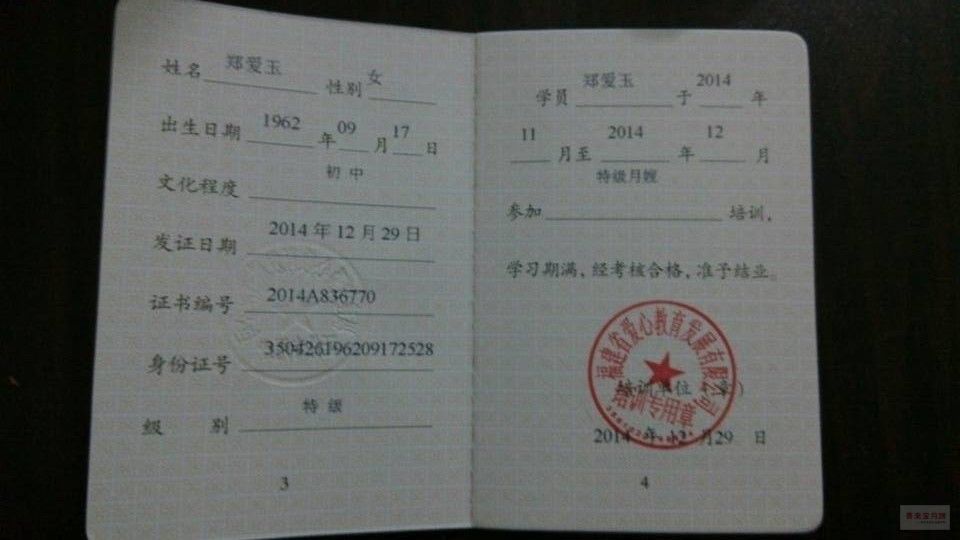 姓名 郑爱玉 性别 女
出生日期 1962 年 09 月 17 日
文化程度 初中
发证日期 2014年12月29日
证书编号 2014A836770
身份证号 350426196209172528
级 别 特级
3
学员 郑爱玉 于 2014 年
11 月至 2014 年 12 月
参加 特级月嫂 培训,
学习期满,经考核合格,准予结业。
福建省爱心教育发展有限公司
培训单位(章)
培训专用章
2014 年 12 月 29 日
4